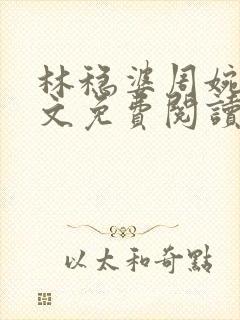 林穩婆周婉
文免費閱讀
以太和奇點